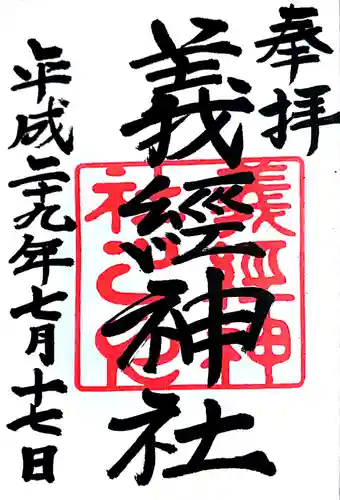 奉拝
義經神社
平成二十九年七月十七日